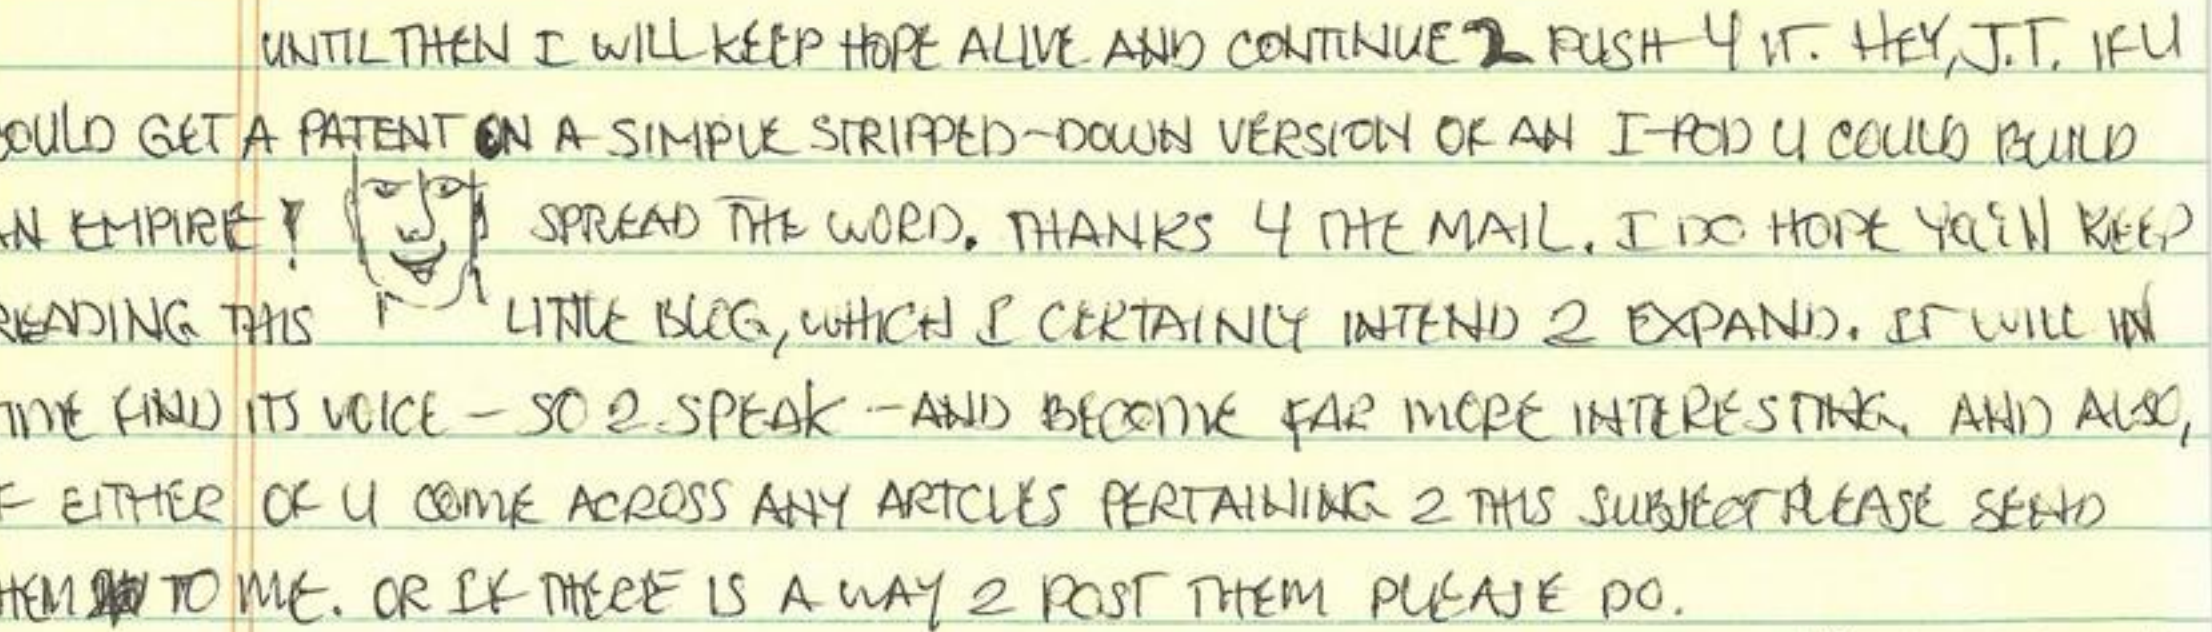 UNTIL THEN I WILL KEEP HOPE ALIVE AND CONTINUE 2 PUSH 4 IT. HEY, J.T. IF U
OULD GET A PATENT ON A SIMPLE STRIPPED-DOWN VERSION OF AN I-POD U COULD BUILD
AN EMPIRE! SPREAD THE WORD. THANKS 4 THE MAIL. I DO HOPE KEEP
READING THIS LITTLE BLOG, WHICH I CERTAINLY INTEND 2 EXPAND. IT WILL IN
TIME FIND ITS VOICE - SO 2 SPEAK - AND BECOME FAR MORE INTERESTING. AND ALSO,
F EITHER OF U COME ACROSS ANY ARTCLES PERTAINING 2 THIS SUBJECT PLEASE SEND
HEM TO ME. OR IF THERE IS A WAY 2 POST THEM PLEASE DO.